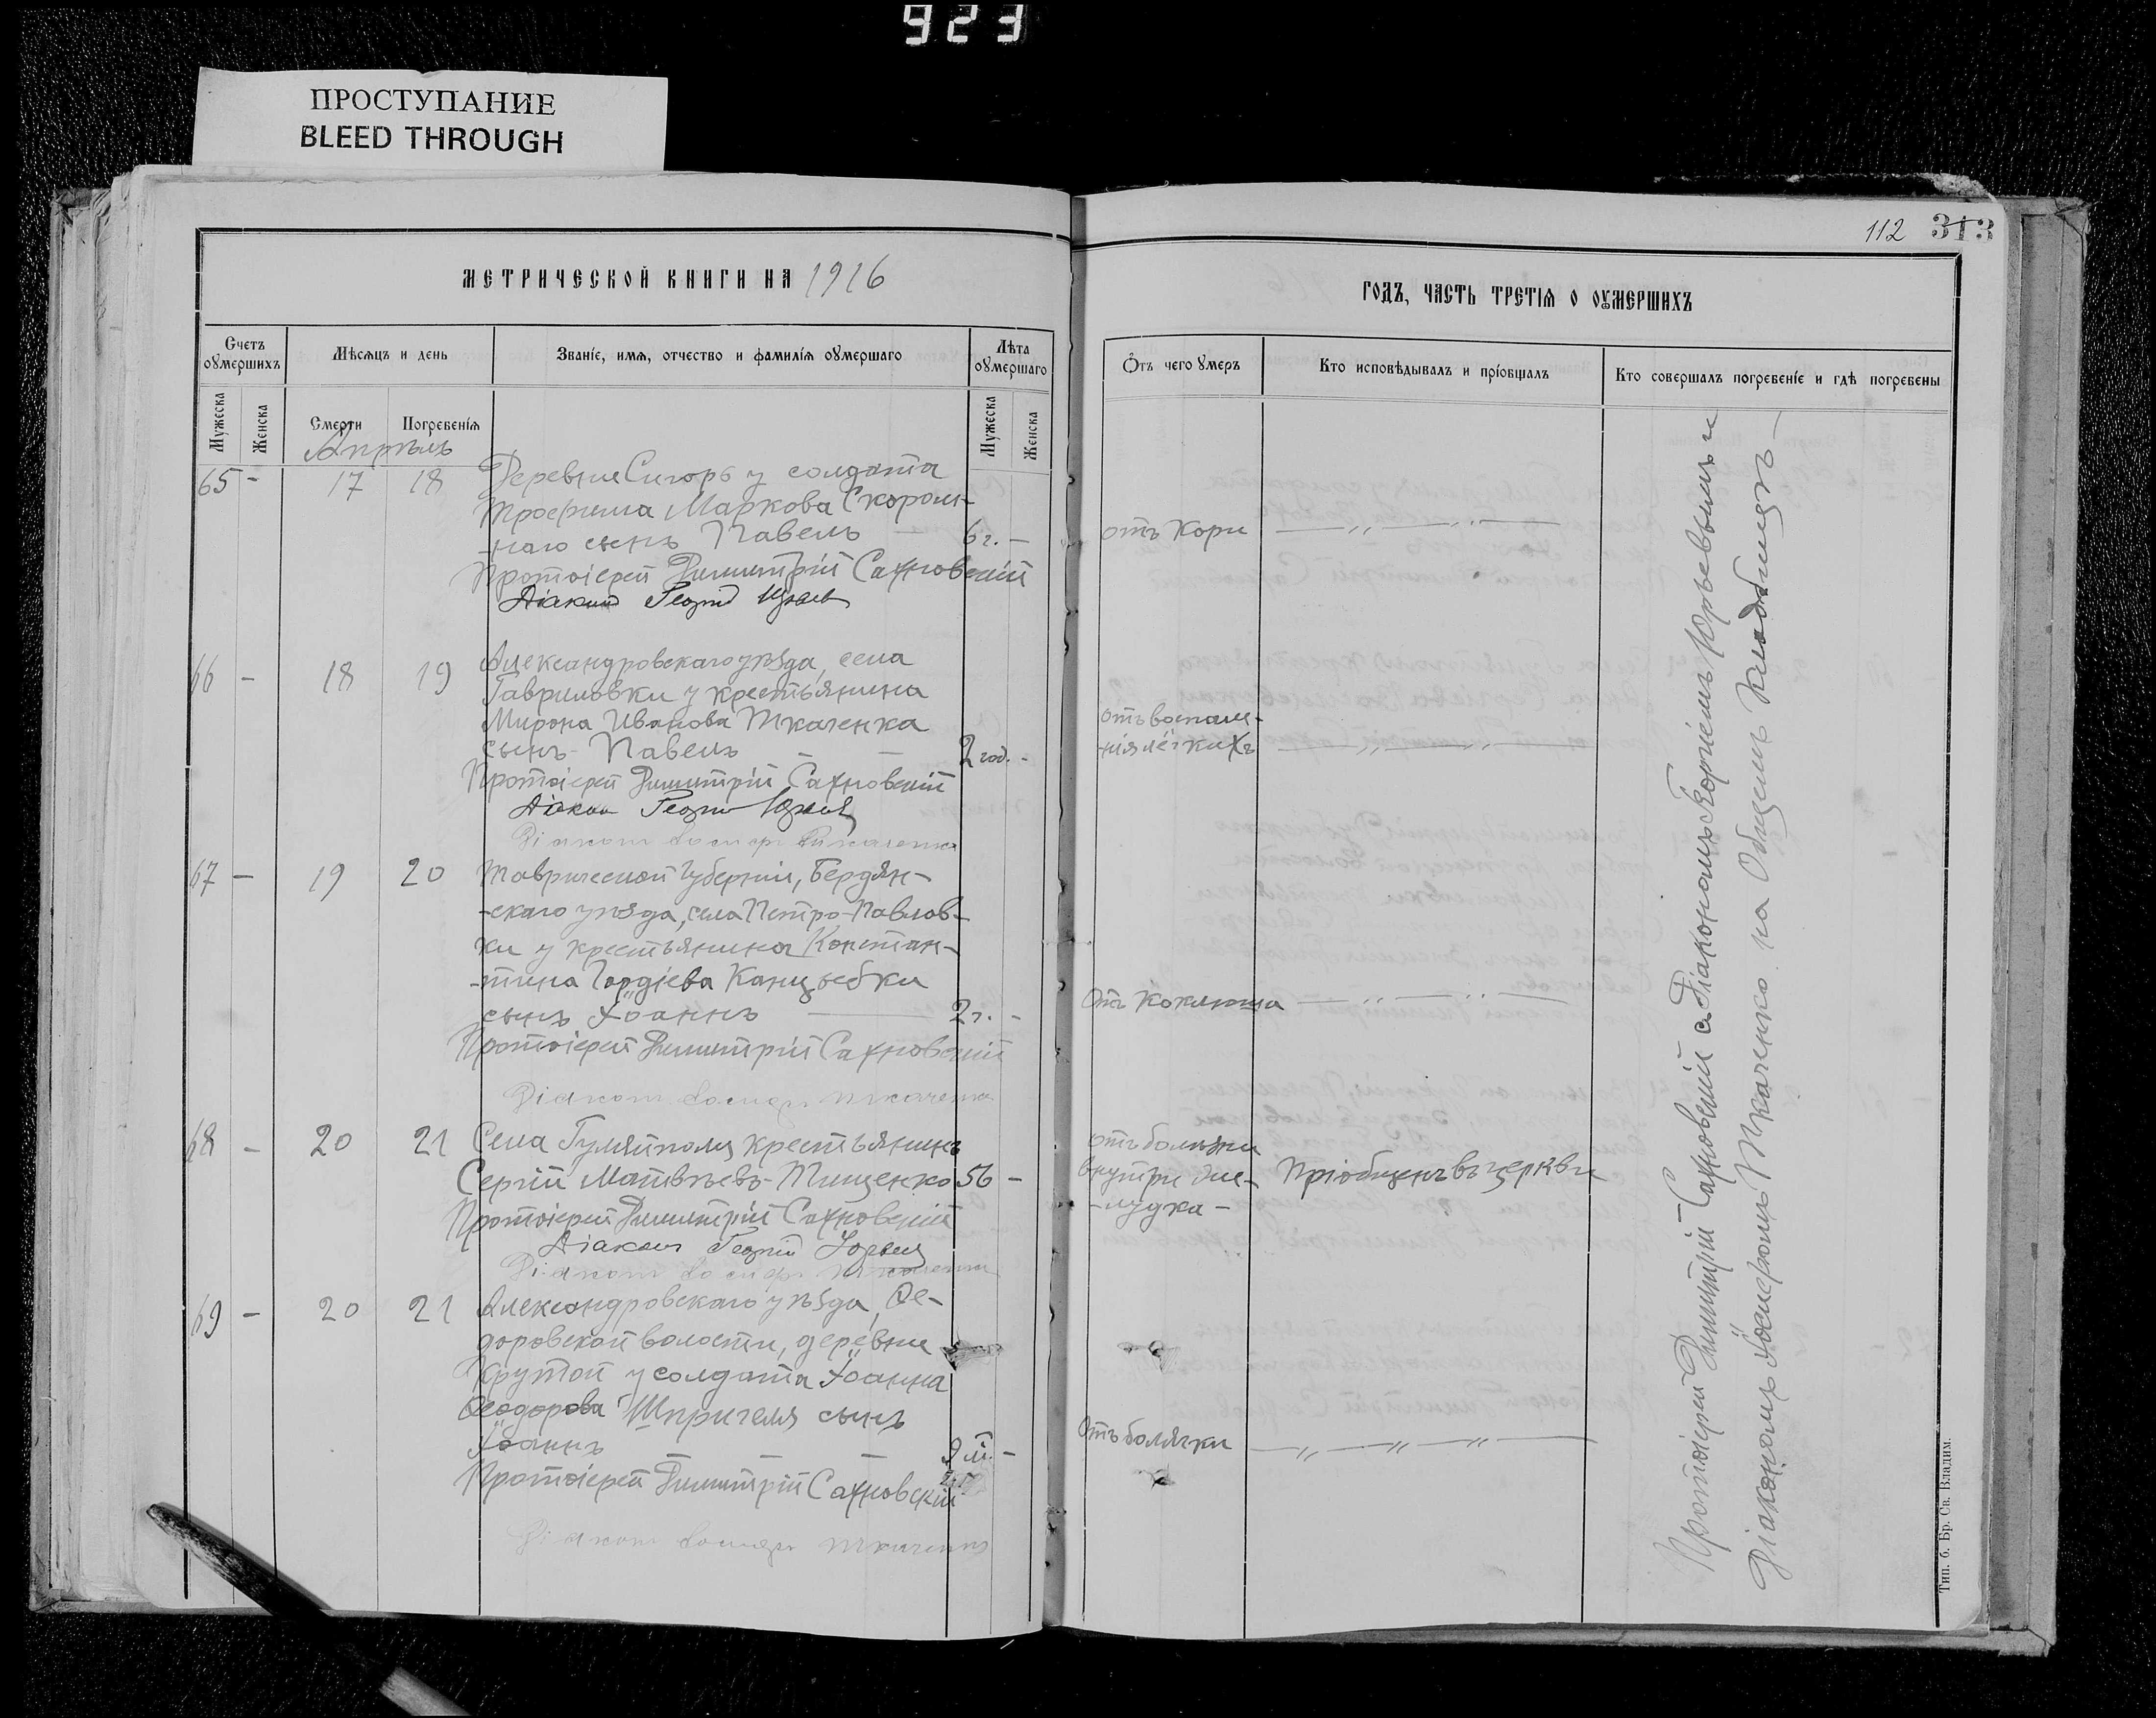 923
ПРОСТУПАНИЕ
BLEED THROUGH
112 313
МЕТРИЧЕСКОЙ КНИГИ НА 1916
ГОДЪ, ЧАСТЬ ТРЕТІЯ О ОУМЕРШИХЪ
Счетъ оумершихъ
Мѣсяцъ и день
Званіе, имя, отчество и фамилія оумершаго
Лѣта оумершаго
Отъ чего умеръ
Кто исповѣдывалъ и пріобщалъ
Кто совершалъ погребеніе и гдѣ погребены
Мужеска
Женска
Смерти
Погребенія
Мужеска
Женска
Апрѣль
65 - 17 18 Деревни Сигоръ у солдата
Трофима Маркова Скором-
-наго сынъ Павелъ — 6 г. —
отъ Кори — „ — „ —
Протоіерей Димитрій Сахновскій
Діаконъ Георгій Юрьев
66 - 18 19 Александровскаго уѣзда, села
Гавриловки у крестьянина
Мирона Иванова Ткаченка
сынъ Павелъ — — 2 год. -
отъ воспале-
-нія лёгкихъ — „ — „ —
Протоіерей Димитрій Сахновскій
Діаконъ Георгій Юрьев
Діаконъ Іосифъ Ткаченко
67 — 19 20 Таврической Губерніи, Бердян-
-скаго уѣзда, села Петро-Павлов-
ки у крестьянина Констан-
-тина Гордіева Канцыбки
сынъ Іоаннъ — 2 г. -
Отъ Коклюша — „ — „ —
Протоіерей Димитрій Сахновскій
Діаконъ Іосифъ Ткаченко
68 - 20 21 Села Гуляйполя крестьянинъ
Сергій Матвѣевъ-Тищенко 56 -
отъ болѣзни
внутри же-
-лудка -
Пріобщенъ въ церкви
Протоіерей Димитрій Сахновскій
Діаконъ Георгій Юрьев
Діаконъ Іосифъ Ткаченко
69 - 20 21 Александровскаго уѣзда, Ѳе-
доровской волости, деревни
Крутой у солдата Іоанна
Ѳеодорова Шпригеля сынъ
Іоаннъ — — 9 м. -
Отъ болячки — „ — „ — „ —
Протоіерей Димитрій Сахновскій
Діаконъ Іосифъ Ткаченко
Протоіерей Димитрій Сахновскій съ Діакономъ Георгіемъ Юрьевымъ и
Діакономъ Іосифомъ Ткаченко на Общемъ Кладбищѣ —
Тип. б. Бр. Св. Владим.